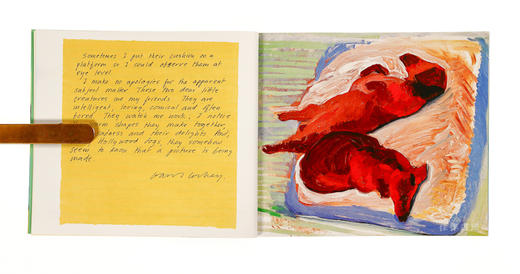 Sometimes I put their cushion on a
platform so I could observe them at
eye level.
I make no apologies for the apparent
subject matter. These two dear little
creatures are my friends. They are
intelligent, loving, comical and often
bored. They watch me work; I notice
shapes they make together
and their delights. And,
Hollywood dogs, they somehow
seem to know that a picture is being
made.
David Hockney.